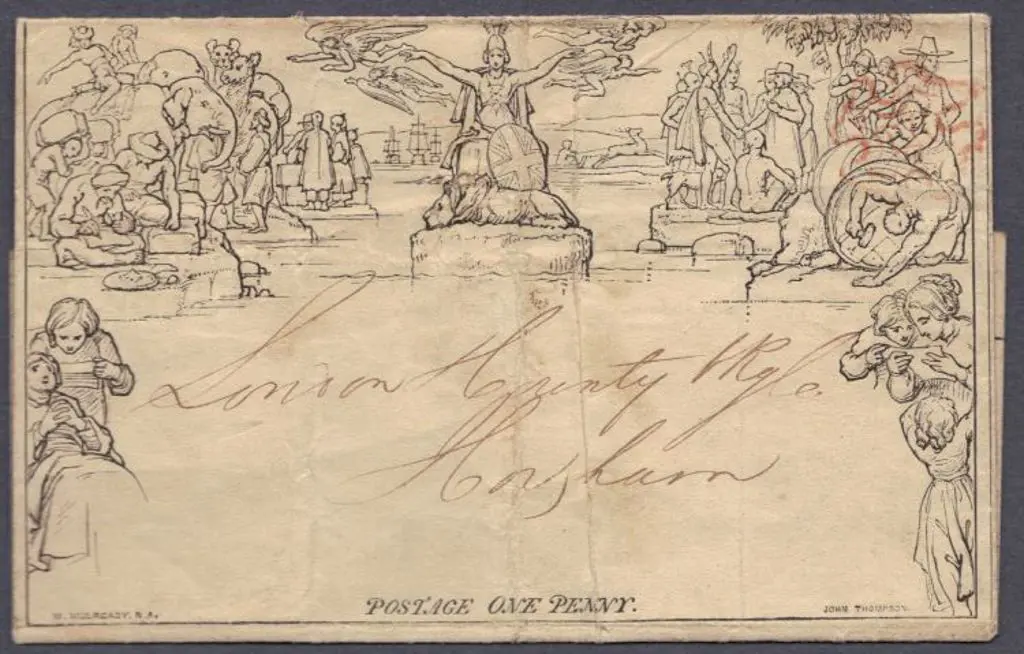 London County
Horsham
POSTAGE ONE PENNY.
W. MULREADY. R.A.
JOHN THOMPSON.